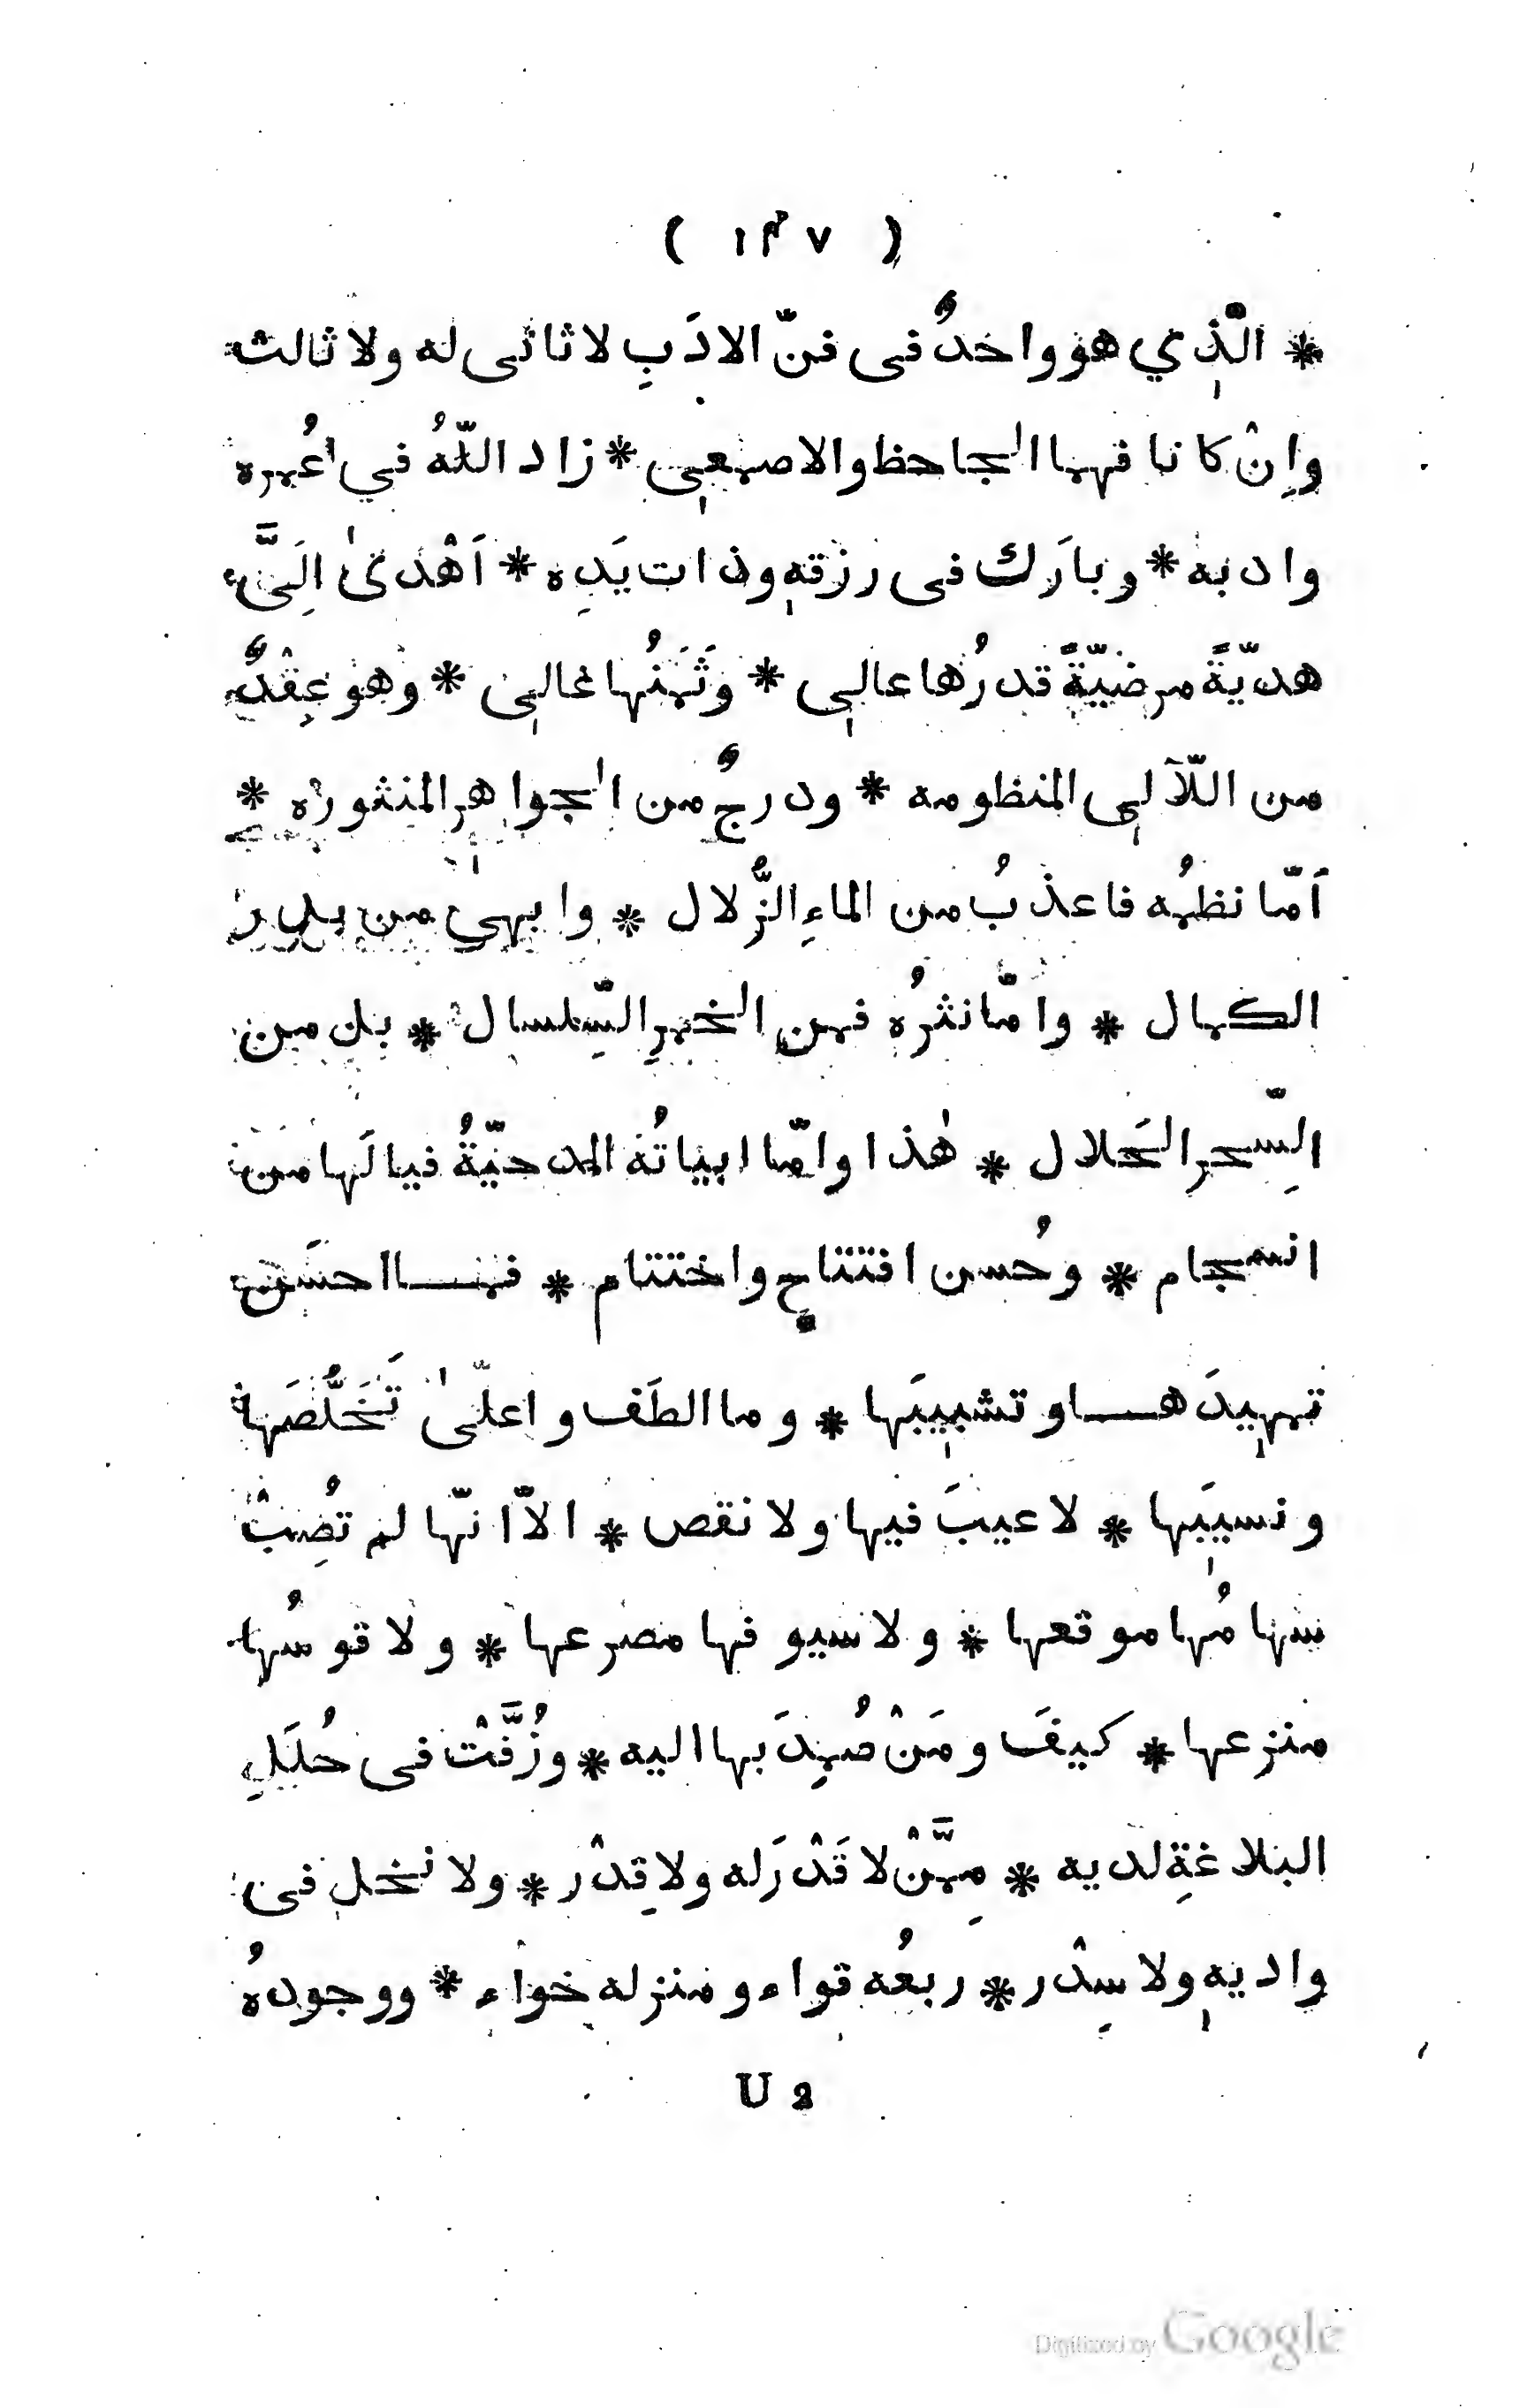 ( ١٤٧ )
* الّذِي هو واحدٌ فى فنّ الادَبِ لا ثانى له ولا ثالث
وإنْ كانا فهما الجاحظ والاصمعى * زاد اللّهُ في عُمره
وادبه * وبارَك فى رزقه وذات يَدِه * اَهْدىٰ اِلَىَّ
هديّةً مرضيّةً قدرُها عالى * وثَمَنُها غالى * وهو عِقْدٌ
من اللّآلى المنظومه * ودرجٌ من الجواهر المنثوره *
اَمّا نظمُه فاعذبُ من الماءِ الزُّلال * وابهى من بدر
الكمال * وامّا نثرُه فمن الخمرِ السِّلسال * بل من
السِّحر الحَلال * هٰذا وامّا ابياتُه المدحيّةُ فيا لَها من
انسجام * وحُسن افتتاحٍ واختتام * فمــا احسَن
تمهيدَهــا وتشبيبَها * وما الطَف واعلىٰ تَخَلُّصَها
ونسيبَها * لا عيبَ فيها ولا نقص * الاّ انّها لم تُصِبْ
سهامُها موقعها * ولا سيوفها مصرعها * ولا قوسُها
منزعها * كيفَ ومَنْ صُمِدَ بها اليه * وزُفَّتْ فى حُلَلِ
البلاغةِ لديه * مِمَّنْ لا قَدْرَ له ولا قِدْر * ولا نخل فى
واديه ولا سِدْر * ربعُه قواء ومنزله خواء * ووجودهُ
U 2
Digitized by Google